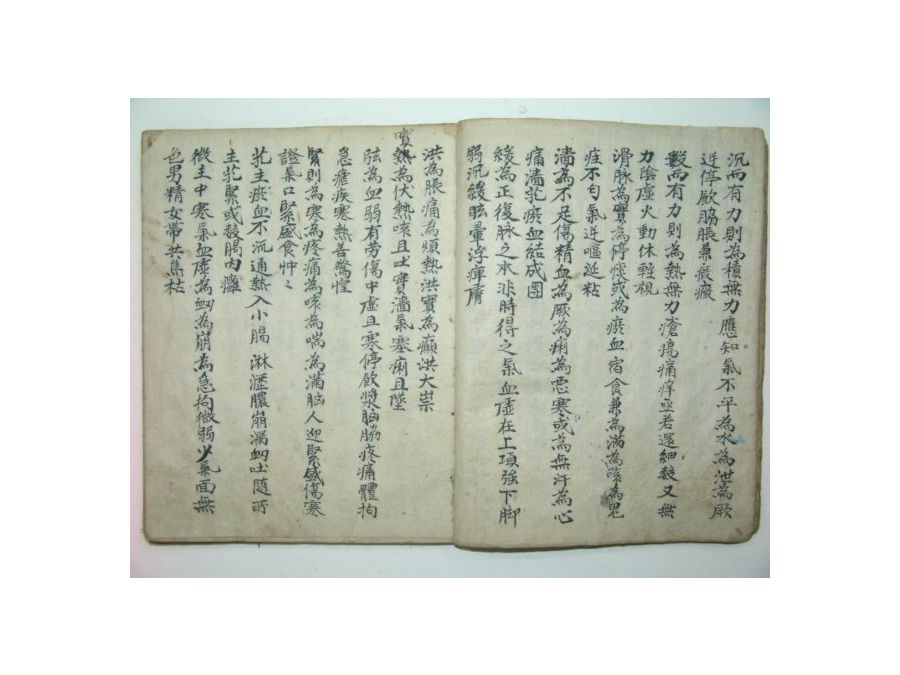 沉而有力則為積無力應知氣不平為水為泄為厥
逆停歃脇脹兼瘕瘕
數而有力則為熱無力瘡痬痛痒亟若還細數又無
力陰虛火動休輕視
滑脉為實為停痰或為瘀血宿食兼為滿為咳為鬼
疰不勻氣逆嘔涎粘
濇為不足傷精血為厥為痢為惡寒或為無汗為心
痛濇芤瘀血結成團
緩為正復脉之本非時得之氣血虛在上項強下脚
弱沉緩眩暈浮痺膚
洪為脹痛為煩熱洪實為癲洪大祟
實熱為伏熱咳且吐實濇氣塞痢且墜
弦為血弱有勞傷中虛且寒停飲漿胸脇疼痛體拘
急瘧疾寒熱善驚惶
緊則為寒為疼痛為咳為喘為滿脑人迎緊盛傷寒
證氣口緊盛食忡〻
芤主瘀血不沉通熱入小腸淋瀝膿崩漏衂吐随所
主芤緊或發腸內癰
微主中寒氣血虛為衂為崩為急拘微弱少氣面無
色男精女帶共焦枯